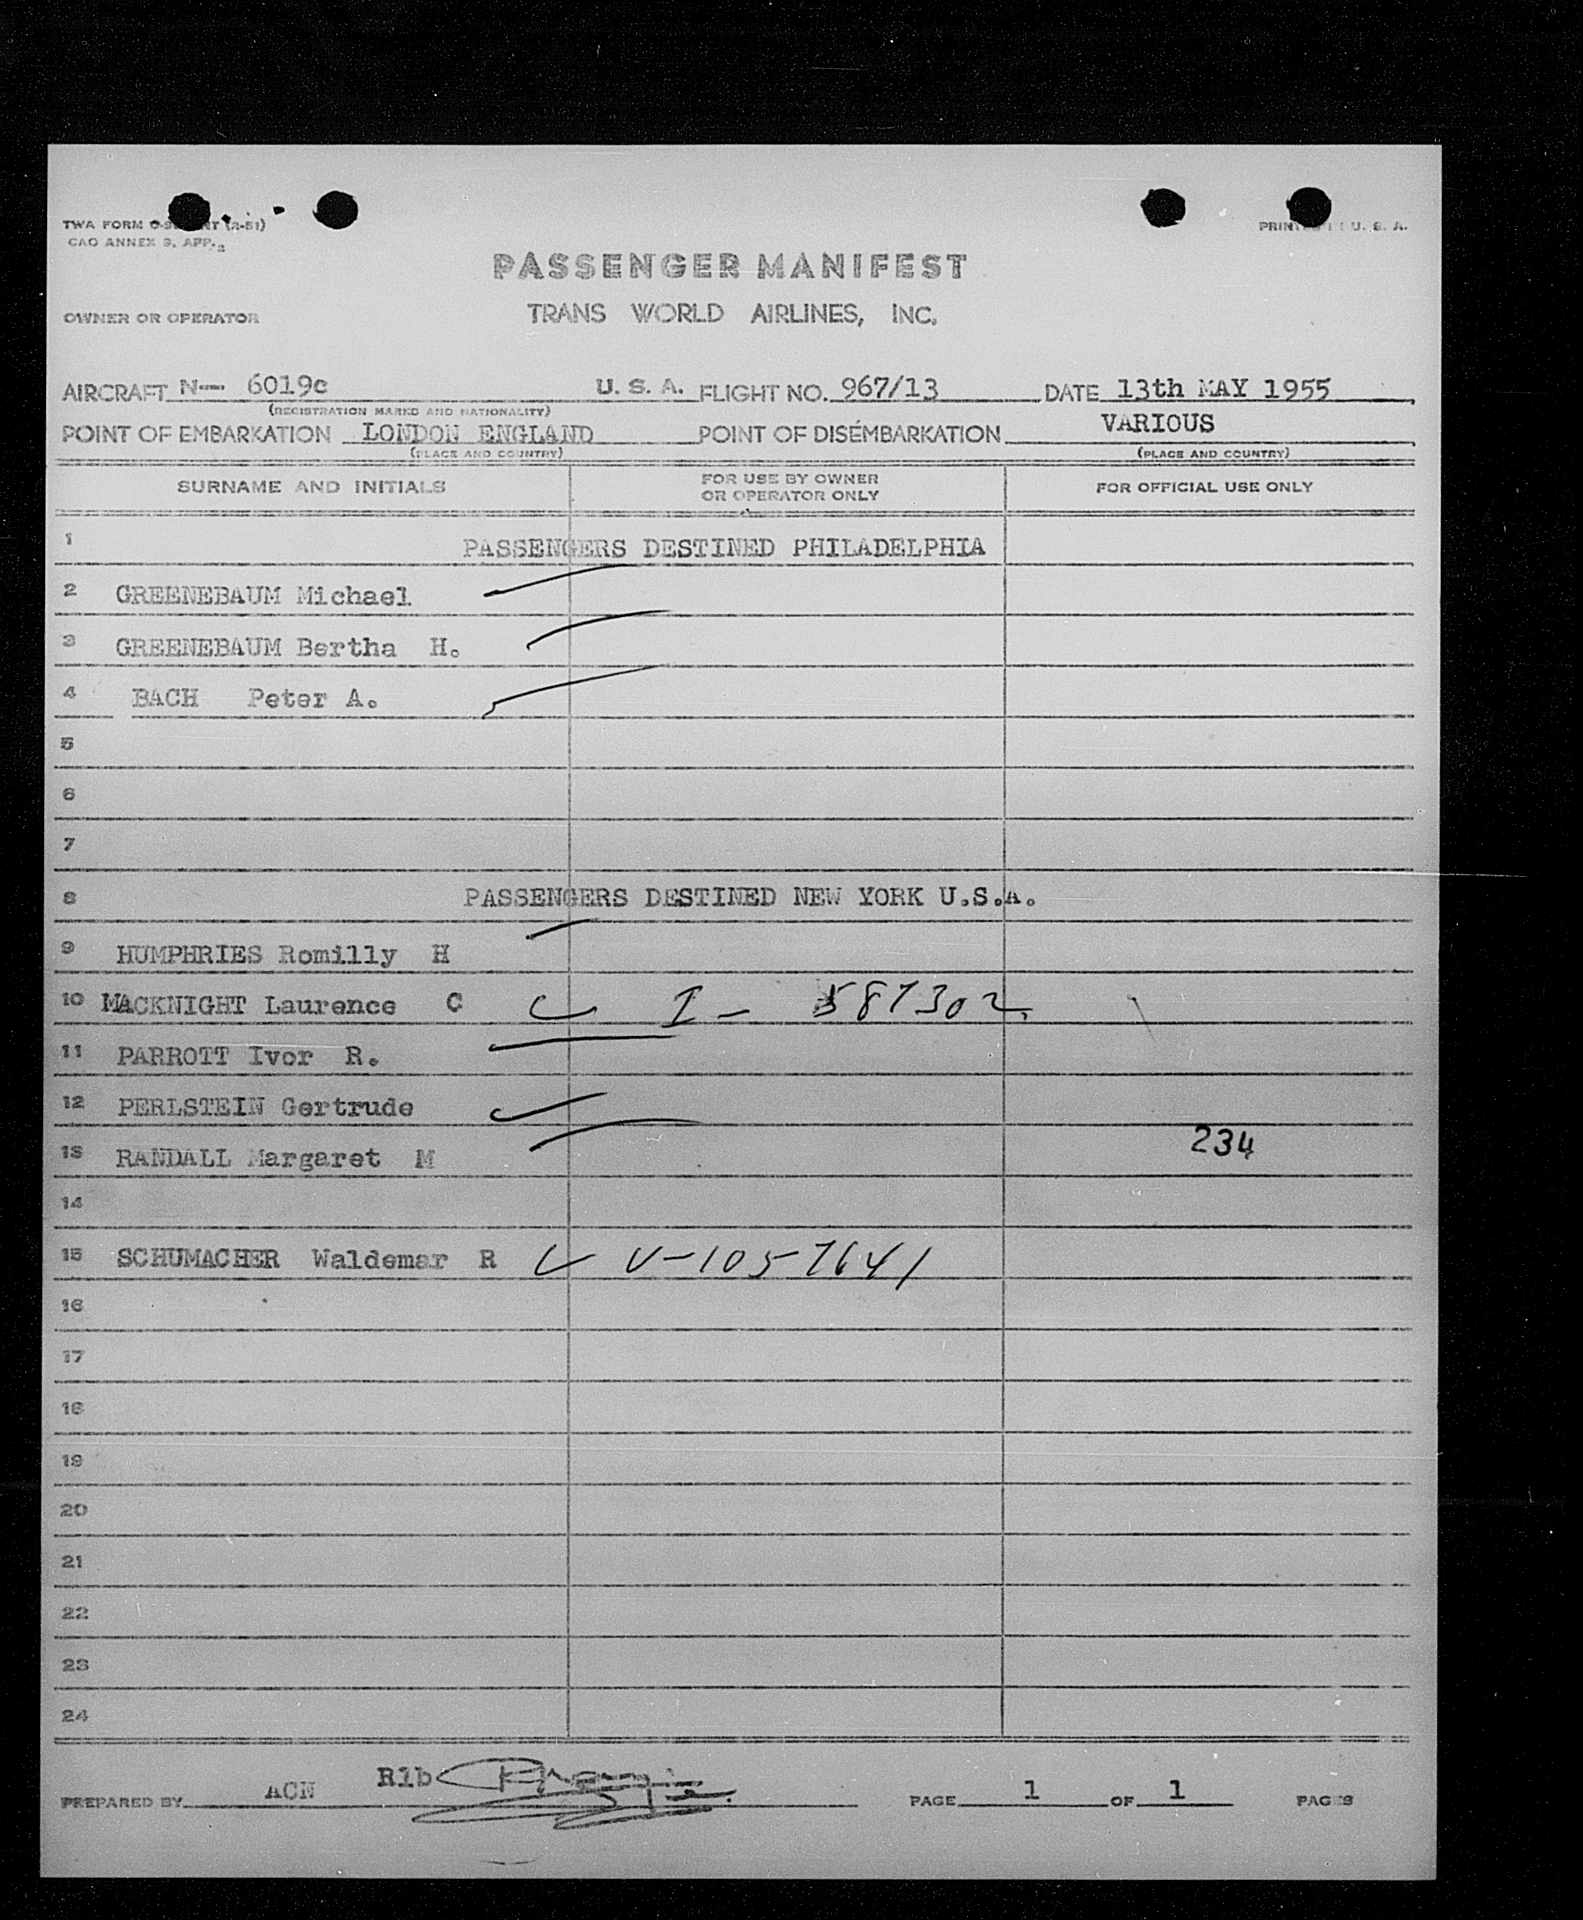 TWA FORM
PRINTED IN U. S. A.
CAO ANNEX 9, APP. 2
PASSENGER MANIFEST
OWNER OR OPERATOR TRANS WORLD AIRLINES, INC.
AIRCRAFT N- 6019c U. S. A. FLIGHT NO. 967/13 DATE 13th MAY 1955
(REGISTRATION MARKS AND NATIONALITY)
POINT OF EMBARKATION LONDON ENGLAND POINT OF DISEMBARKATION VARIOUS
(PLACE AND COUNTRY) (PLACE AND COUNTRY)
SURNAME AND INITIALS FOR USE BY OWNER OR OPERATOR ONLY FOR OFFICIAL USE ONLY
1 PASSENGERS DESTINED PHILADELPHIA
2 GREENEBAUM Michael
3 GREENEBAUM Bertha H.
4 BACH Peter A.
5
6
7
8 PASSENGERS DESTINED NEW YORK U.S.A.
9 HUMPHRIES Romilly H
10 MACKNIGHT Laurence C I - 587302
11 PARROTT Ivor R.
12 PERLSTEIN Gertrude
13 RANDALL Margaret M 234
14
15 SCHUMACHER Waldemar R V-1057641
16
17
18
19
20
21
22
23
24
PREPARED BY ACN R1b PAGE 1 OF 1 PAGES